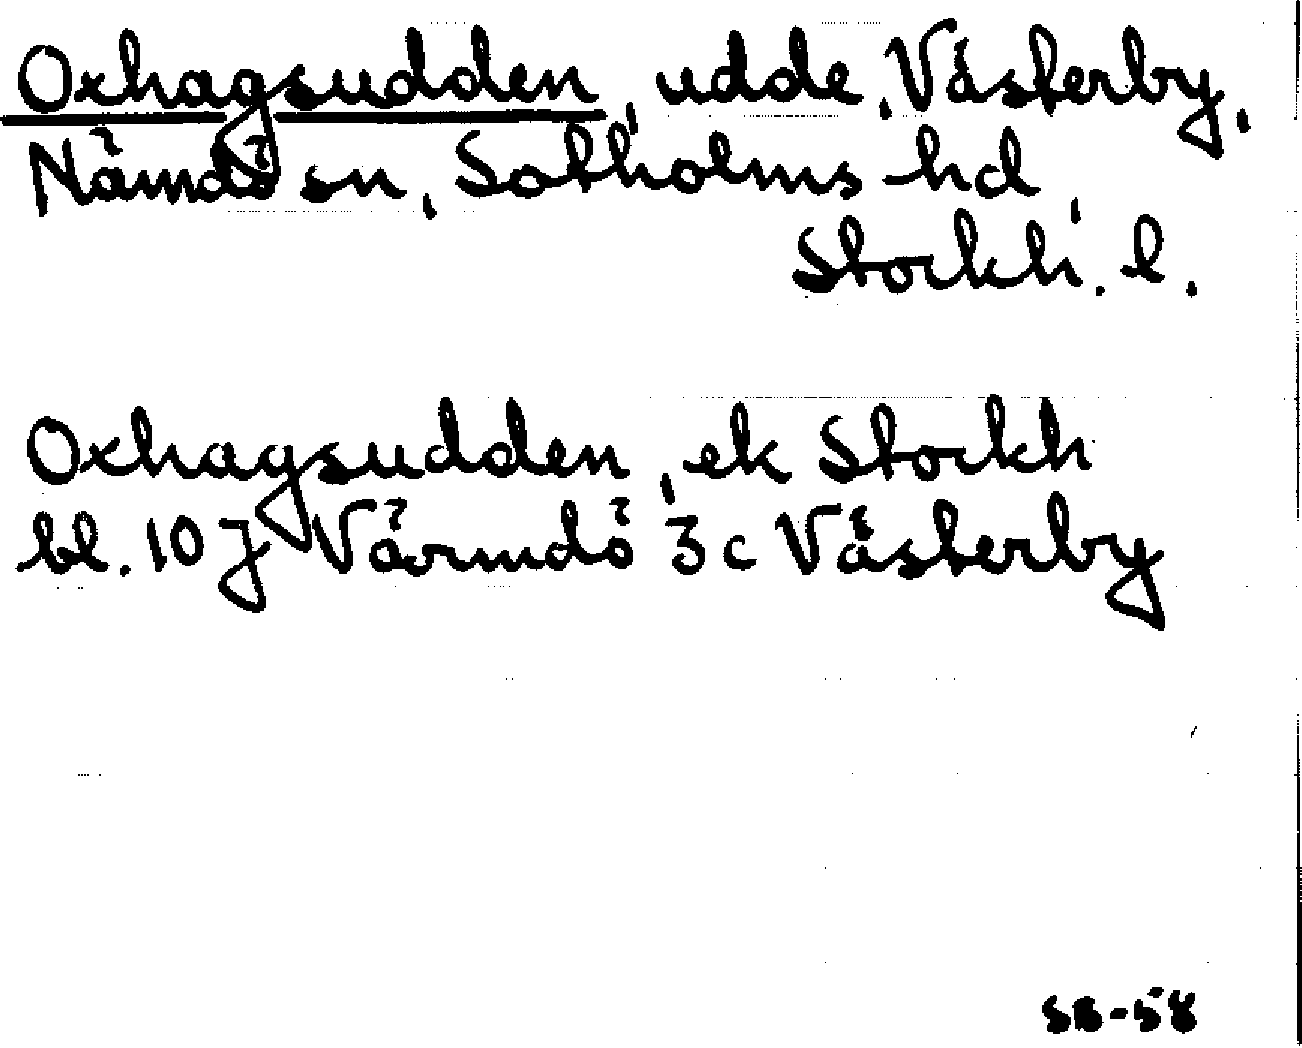 Oxhagsudden, udde, Västerby,
Nämdö sn, Sotholms hd,
Stockh. l.
Oxhagsudden, ek Stockh
bl. 10 J Värmdö 3 c Västerby
SB-58